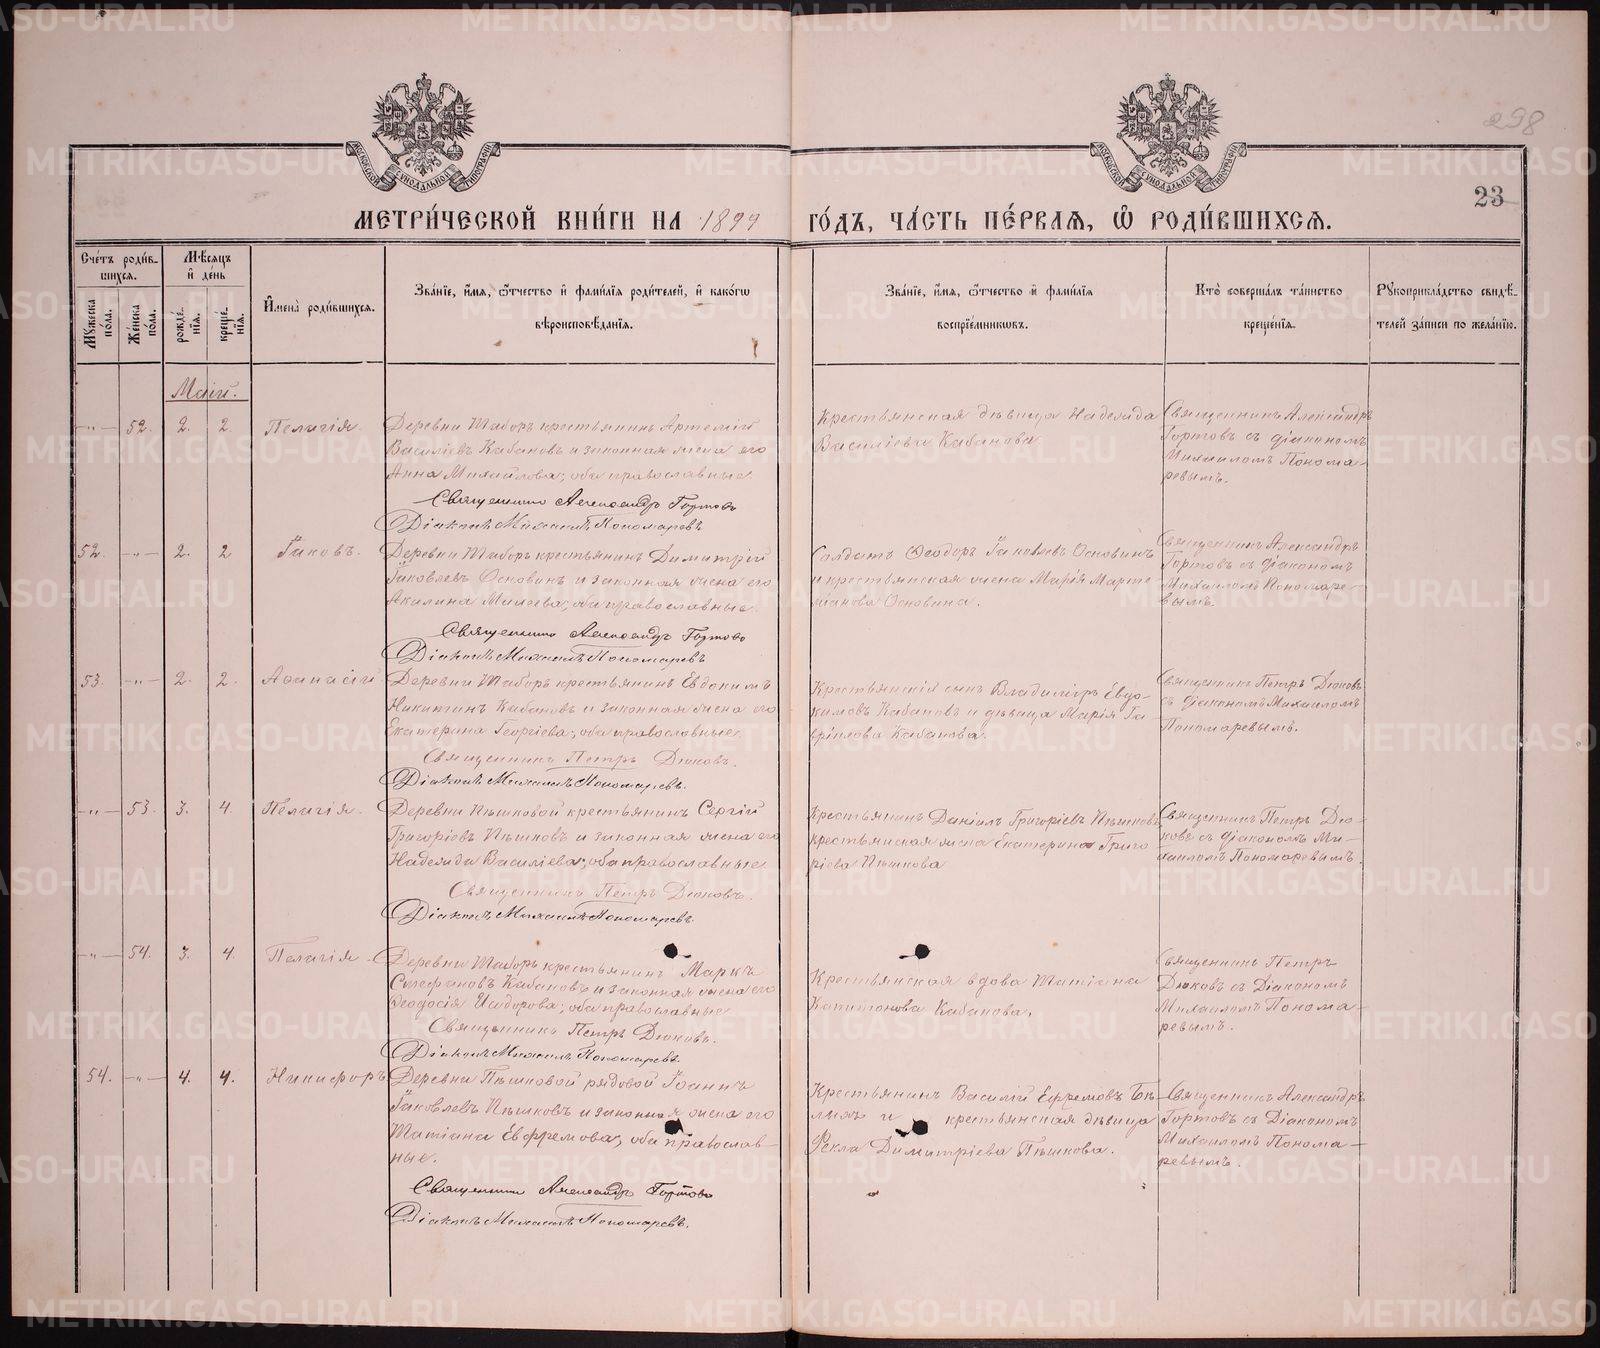 298
23
МЕТРИ́ЧЕСКОЙ КНИ́ГИ НА 1899 ГО́ДЪ, ЧА́СТЬ ПЕ́РВАЯ, Ѿ РОДИ́ВШИХСЯ.
Сче́тъ роди́в-
шихся.
Мꙋжеска пола.
Же́нска по́ла.
Мѣ́сяцъ
и҆ де́нь
рожде́-
нїѧ.
креще́-
нїѧ.
И҆мена̀ роди́вшихся.
Зва́нїе, и҆́мѧ, ѻ҆́тчество и҆ фами́лїѧ роди́телей, и҆ како́гѡ
вѣроисповѣ́данїѧ.
Зва́нїе, и҆́мѧ, ѻ҆́тчество и҆ фами́лїѧ
воспрїе́мниковъ.
Кто̀ соверша́лъ та́инство
креще́нїѧ.
Рꙋкоприкла́дство свидѣ́-
телей за́писи по жела́нїю.
Маій.
—„— 52. 2. 2. Пелагія.
Деревни Таборъ крестьянинъ Артемій
Василіевъ Кабановъ и законная жена его
Анна Михайлова; оба православные
Священникъ Александръ Гортовъ
Діаконъ Михаилъ Пономаревъ
Крестьянская дѣвица Надежда
Василіева Кабанова
Священникъ Александръ
Гортовъ съ діакономъ
Михаиломъ Понома-
ревымъ.
52. —„— 2. 2 Іаковъ.
Деревни Таборъ крестьянинъ Димитрій
Іаковлевъ Основинъ и законная жена его
Акилина; оба православные.
Священникъ Александръ Гортовъ
Діаконъ Михаилъ Пономаревъ
Солдатъ Ѳеодоръ Іаковлевъ Основинъ
и крестьянская жена Марія Марти-
міанова Основина.
Священникъ Александръ
Гортовъ съ діакономъ
Михаиломъ Пономаре-
вымъ.
53. —„— 2. 2. Аѳанасій
Деревни Таборъ крестьянинъ Евдокимъ
Никитинъ Кабановъ и законная жена его
Екатерина Георгіева; оба православные
Священникъ Петръ Дюковъ.
Діаконъ Михаилъ Пономаревъ.
Крестьянскій сынъ Владиміръ Евдо-
кимовъ Кабановъ и дѣвица Марія Га-
вріилова Кабанова.
Священникъ Петръ Дюковъ
съ діакономъ Михаиломъ
Пономаревымъ.
—„— 53. 3. 4. Пелагія.
Деревни Пѣшковой крестьянинъ Сергій
Григоріевъ Пѣшковъ и законная жена его
Надежда Василіева; оба православные
Священникъ Петръ Дюковъ.
Діаконъ Михаилъ Пономаревъ
Крестьянинъ Даніилъ Григоріевъ Пѣшковъ
крестьянская жена Екатерина Григо
ріева Пѣшкова
Священникъ Петръ Дю-
ковъ съ діакономъ Ми-
хаиломъ Пономаревымъ.
—„— 54. 3. 4. Пелагія
Деревни Таборъ крестьянинъ Маркъ
Стефановъ Кабановъ и законная жена его
Ѳеодосія Исидорова; оба православные
Священникъ Петръ Дюковъ.
Діаконъ Михаилъ Пономаревъ.
Крестьянская вдова Татіана
Капитонова Кабанова.
Священникъ Петръ
Дюковъ съ Діакономъ
Михаиломъ Понома-
ревымъ.
54. —„— 4. 4. Никифоръ
Деревни Пѣшковой рядовой Іоаннъ
Іаковлевъ Пѣшковъ и законная жена его
Татіана Евфремова; оба православ-
ные.
Священникъ Александръ Гортовъ
Діаконъ Михаилъ Пономаревъ.
Крестьянинъ Василій Ефремовъ Бѣ-
лыхъ и крестьянская дѣвица
Ѳекла Димитріева Пѣшкова.
Священникъ Александръ
Гортовъ съ Діакономъ
Михаиломъ Понома-
ревымъ.
METRIKI.GASO-URAL.RU